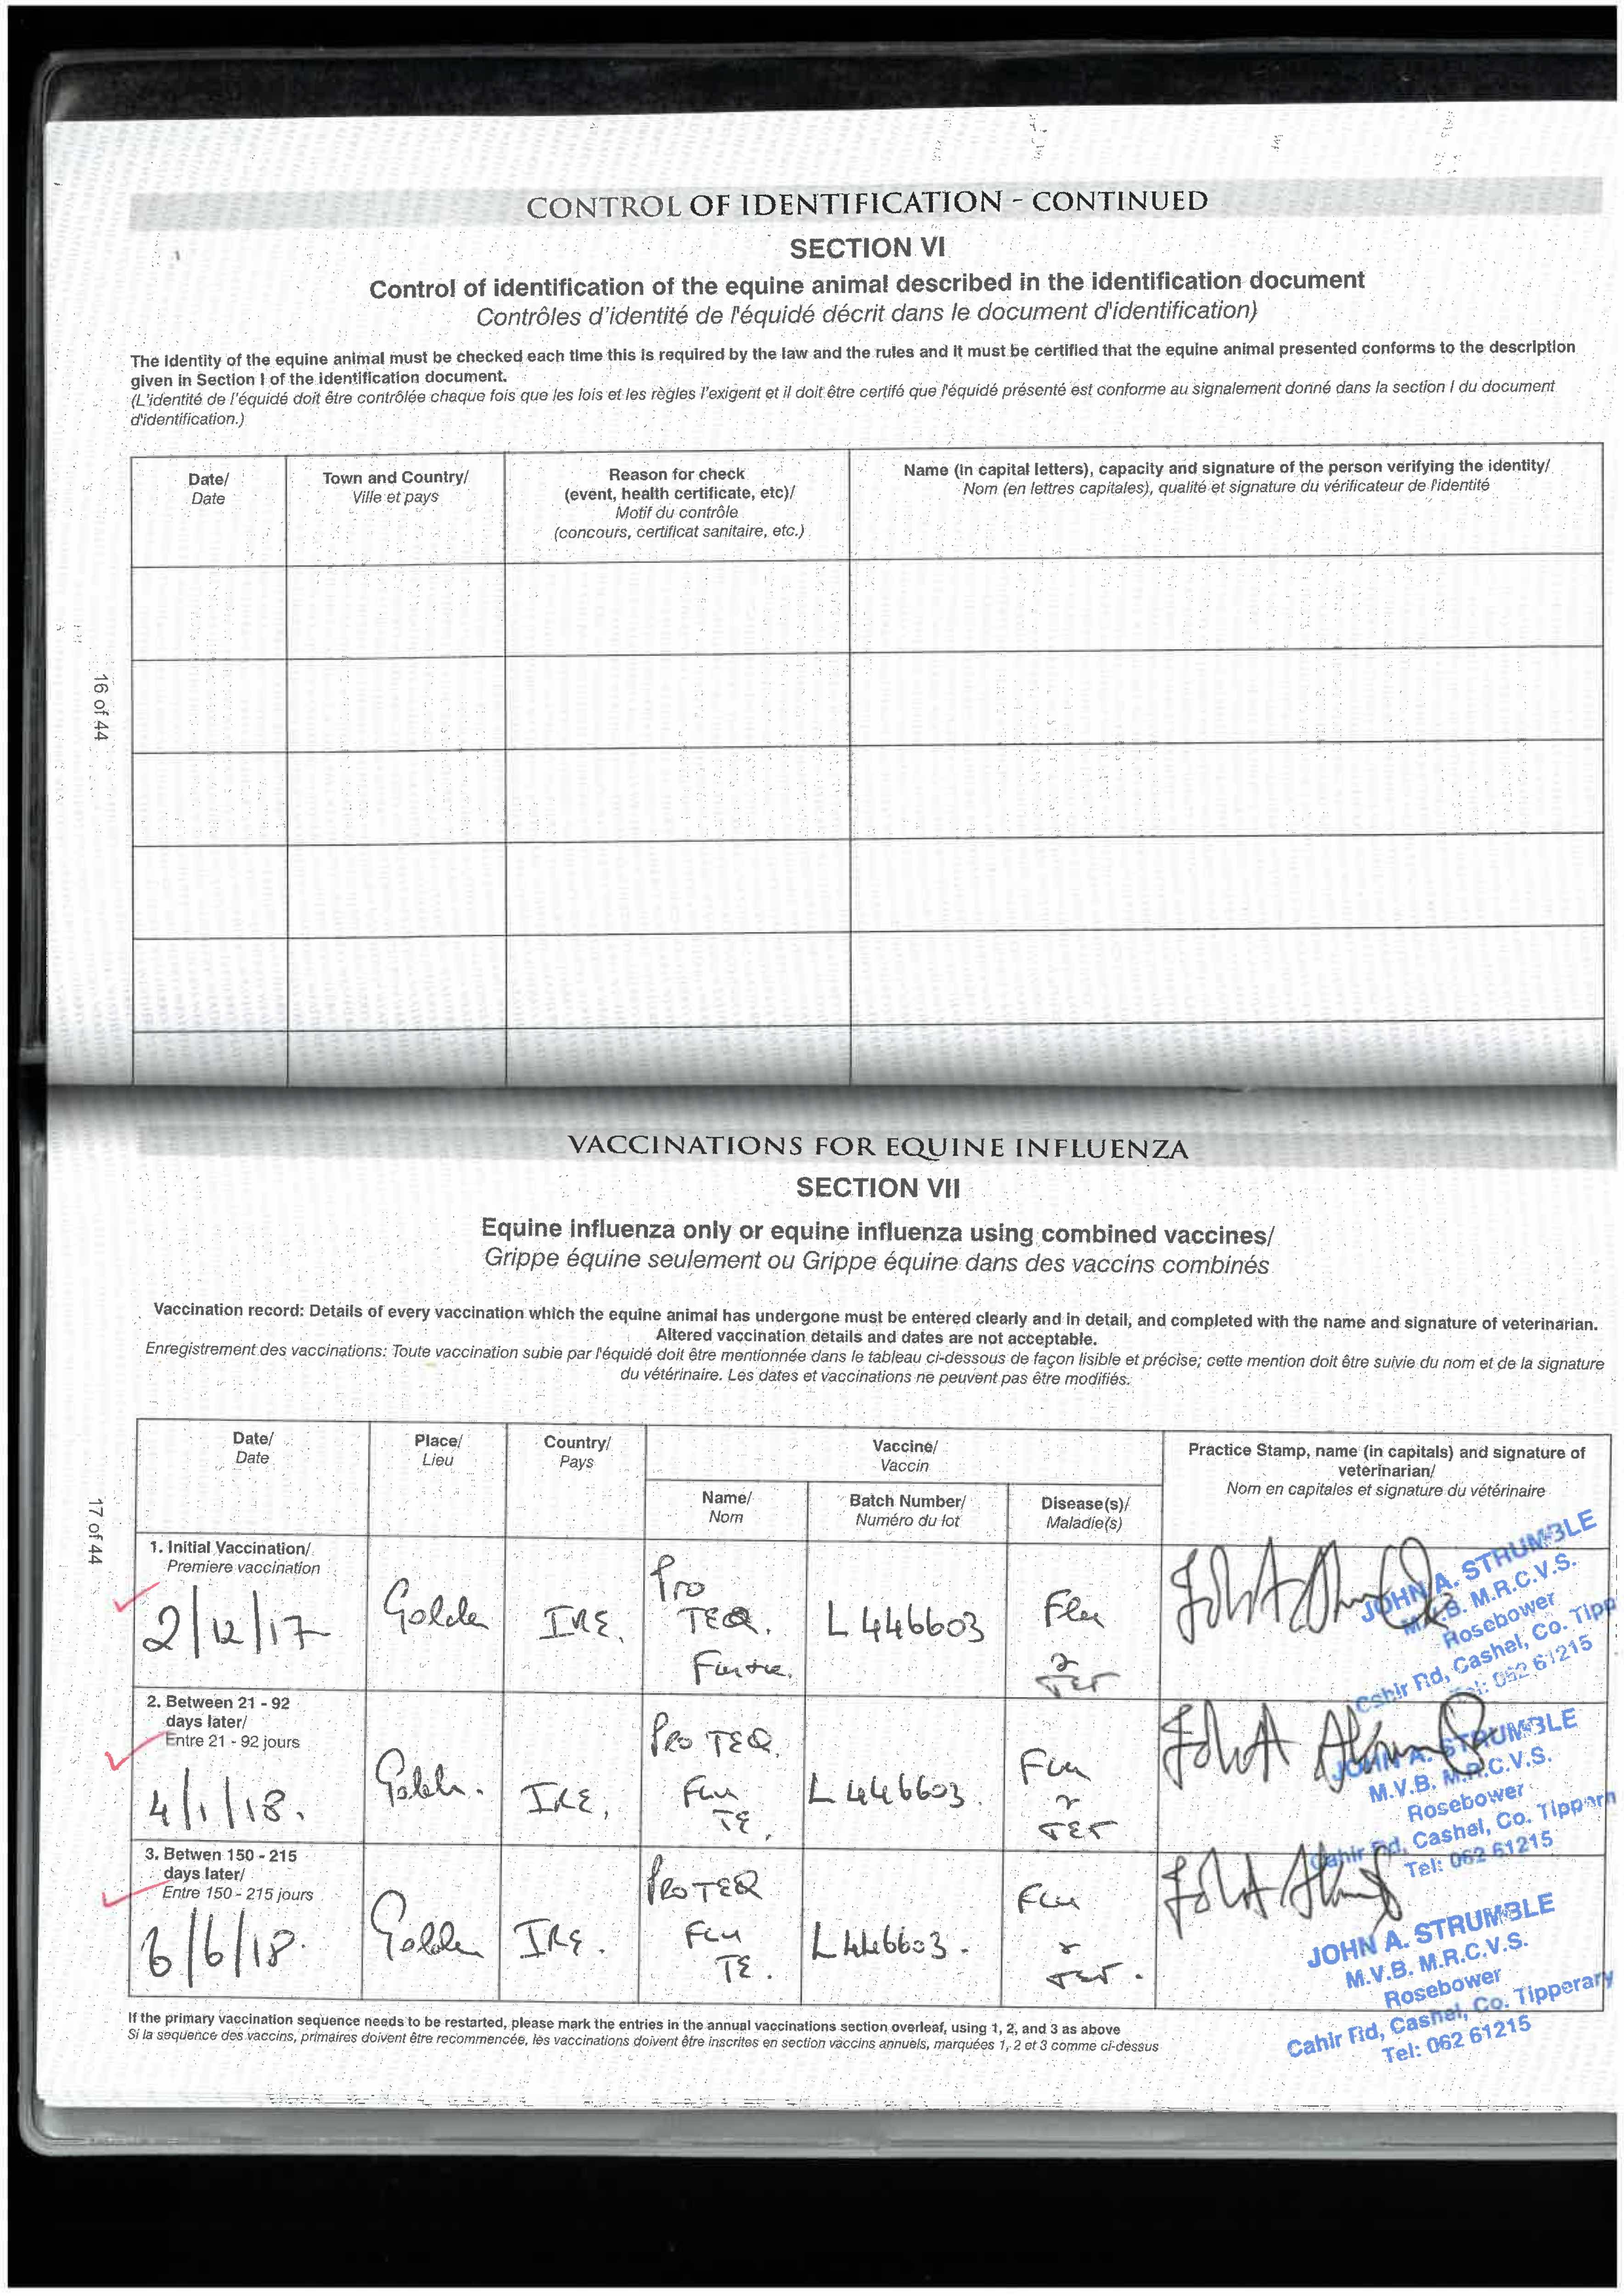 CONTROL OF IDENTIFICATION - CONTINUED
SECTION VI
Control of identification of the equine animal described in the identification document
Contrôles d'identité de l'équidé décrit dans le document d'identification)
The identity of the equine animal must be checked each time this is required by the law and the rules and it must be certified that the equine animal presented conforms to the description
given in Section I of the identification document.
(L'identité de l'équidé doit être contrôlée chaque fois que les lois et les règles l'exigent et il doit être certifé que l'équidé présenté est conforme au signalement donné dans la section I du document
d'identification.)
Date/
Date
Town and Country/
Ville et pays
Reason for check
(event, health certificate, etc)/
Motif du contrôle
(concours, certificat sanitaire, etc.)
Name (in capital letters), capacity and signature of the person verifying the identity/
Nom (en lettres capitales), qualité et signature du vérificateur de l'identité
16 of 44
VACCINATIONS FOR EQUINE INFLUENZA
SECTION VII
Equine influenza only or equine influenza using combined vaccines/
Grippe équine seulement ou Grippe équine dans des vaccins combinés
Vaccination record: Details of every vaccination which the equine animal has undergone must be entered clearly and in detail, and completed with the name and signature of veterinarian.
Altered vaccination details and dates are not acceptable.
Enregistrement des vaccinations: Toute vaccination subie par l'équidé doit être mentionnée dans le tableau ci-dessous de façon lisible et précise; cette mention doit être suivie du nom et de la signature
du vétérinaire. Les dates et vaccinations ne peuvent pas être modifiés.
Date/
Date
Place/
Lieu
Country/
Pays
Vaccine/
Vaccin
Name/
Nom
Batch Number/
Numéro du lot
Disease(s)/
Maladie(s)
Practice Stamp, name (in capitals) and signature of
veterinarian/
Nom en capitales et signature du vétérinaire
17 of 44
1. Initial Vaccination/
Premiere vaccination
2/12/17
Golden
IRE.
Pro
TEQ.
L446603
Flu
TET
JOHN A. STRUMBLE
M.V.B. M.R.C.V.S.
Rosebower
Cahir Rd, Cashel, Co. Tipp
Tel: 062 61215
2. Between 21 - 92
days later/
Entre 21 - 92 jours
4/1/18.
Golden.
IRE.
PROTEQ.
Flu
TE.
L446603.
Flu
TET
JOHN A. STRUMBLE
M.V.B. M.R.C.V.S.
Rosebower
Cahir Rd, Cashel, Co. Tipperar
Tel: 062 61215
3. Betwen 150 - 215
days later/
Entre 150 - 215 jours
6/6/18.
Golden
IRE.
PROTEQ
Flu
TE.
L446603.
Flu
TET.
JOHN A. STRUMBLE
M.V.B. M.R.C.V.S.
Rosebower
Cahir Rd, Cashel, Co. Tipperary
Tel: 062 61215
If the primary vaccination sequence needs to be restarted, please mark the entries in the annual vaccinations section overleaf, using 1, 2, and 3 as above
Si la sequence des vaccins, primaires doivent être recommencée, les vaccinations doivent être inscrites en section vaccins annuels, marquées 1, 2 et 3 comme ci-dessus